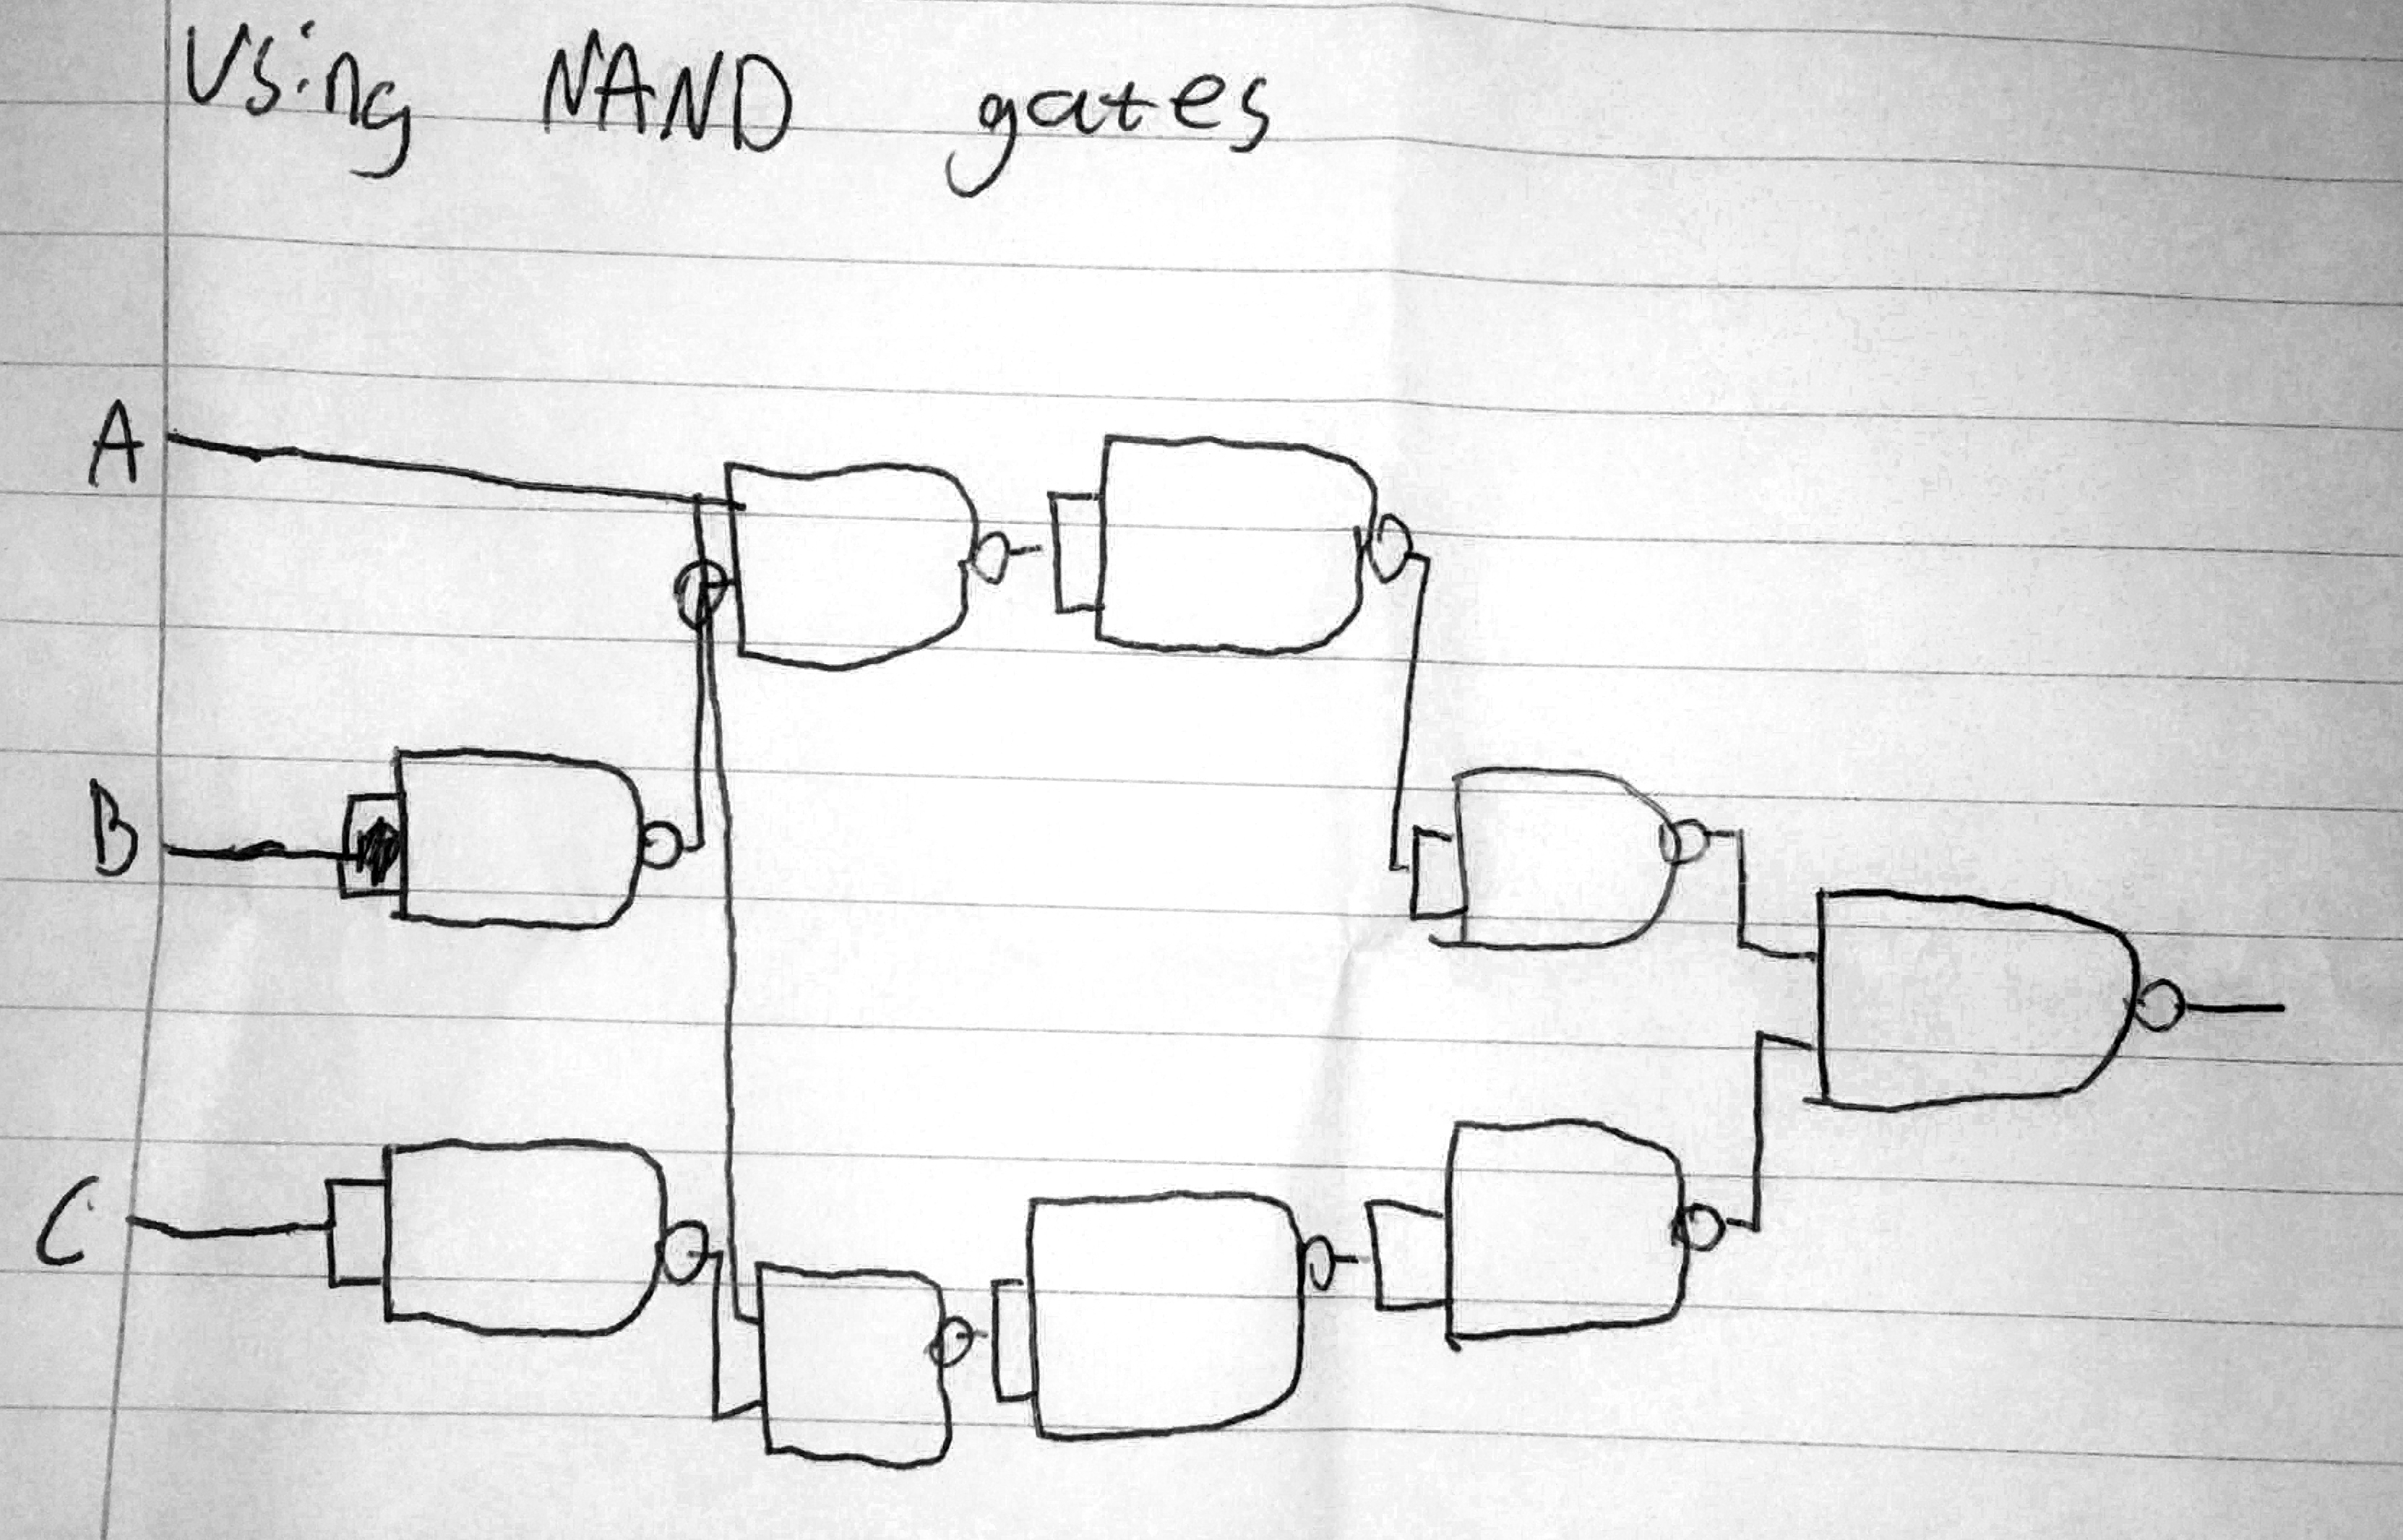 Using NAND gates
A
B
C